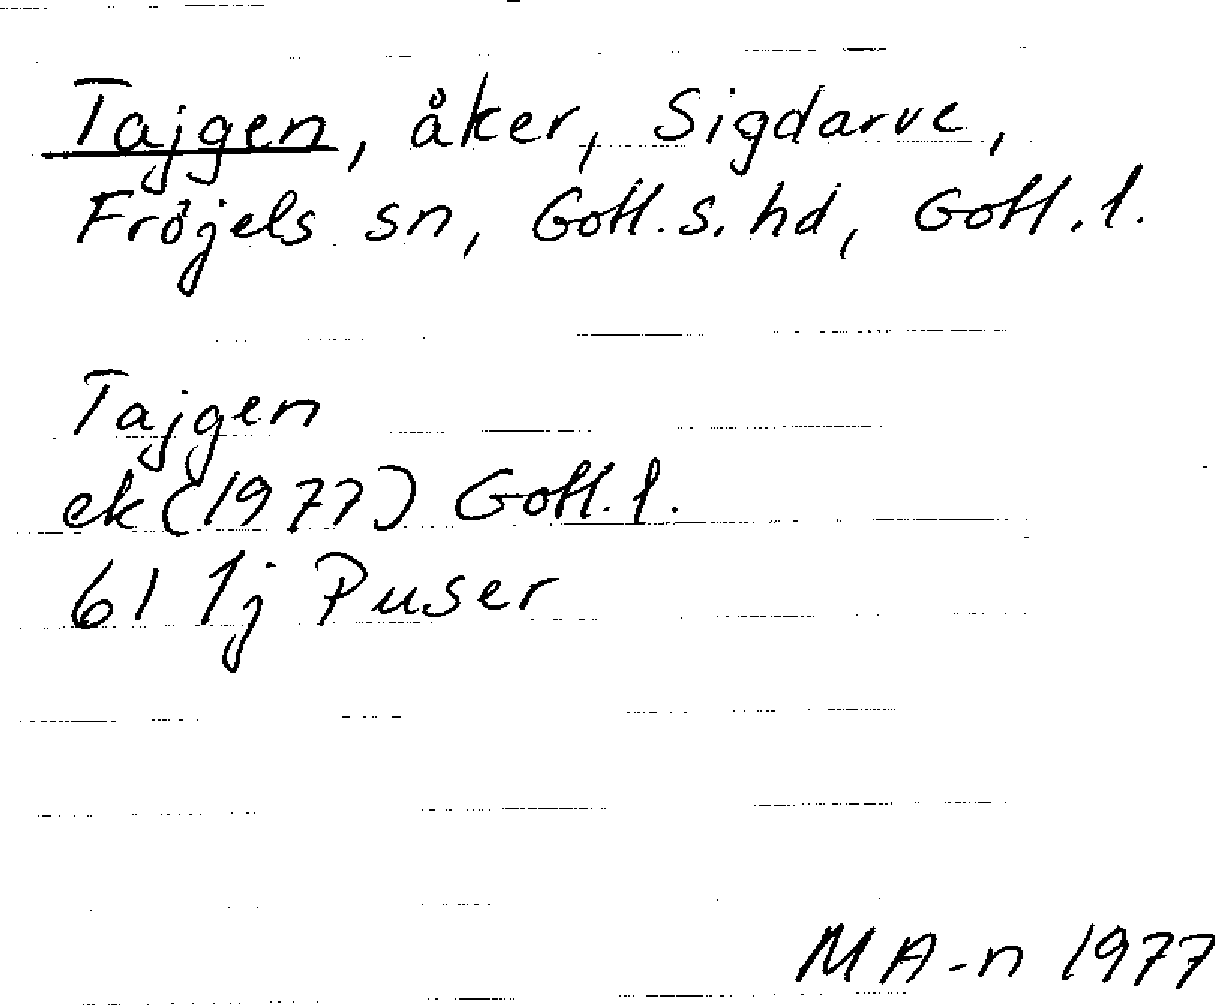 Tajgen, åker, Sigdarve,
Fröjels sn, Gotl. s. hd, Gotl. l.
Tajgen
ek (1977) Gotl. l.
61 1j Puser
MA-n 1977